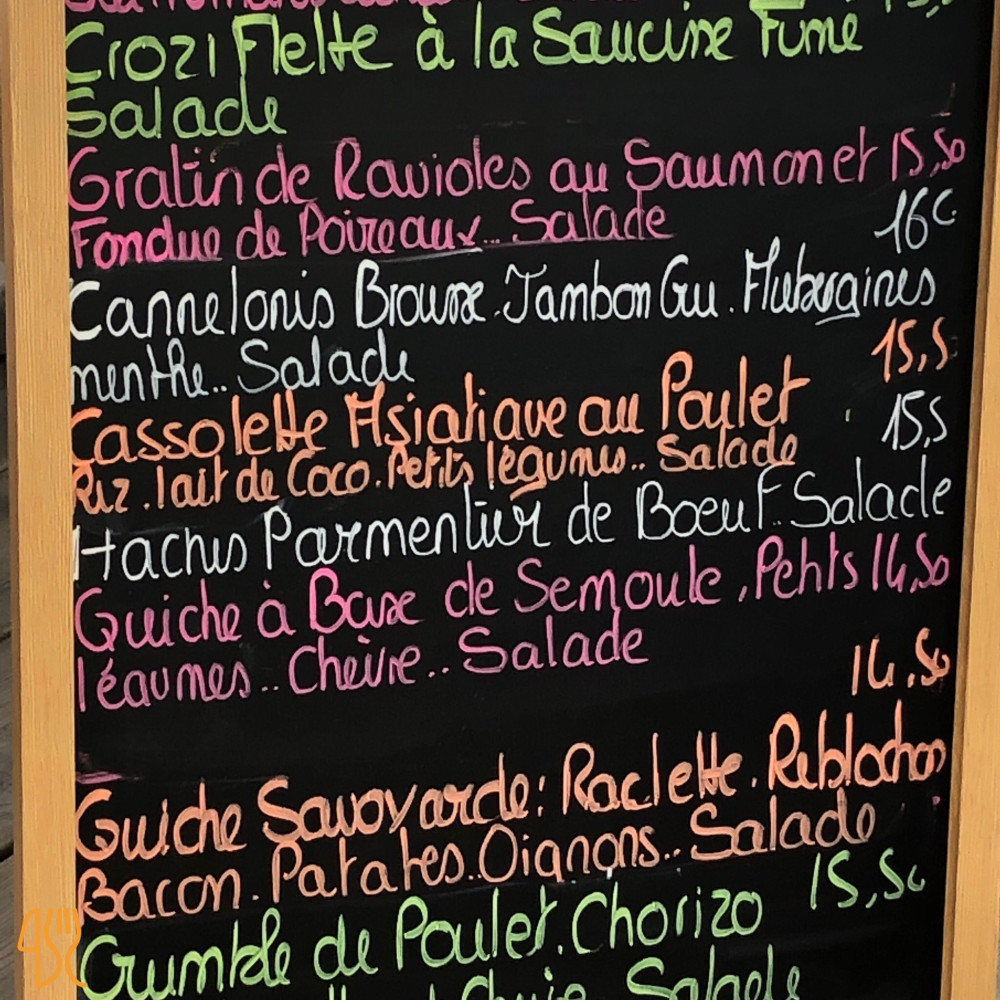 Crozi Flette à la Saucisse Fumé
Salade
Gratin de Ravioles au Saumon et 15,50
Fondue de Poireaux.. Salade
16€
Cannelonis Brousse. Jambon Cru. Aubergines
menthe.. Salade
15,5
Cassolette Asiatique au Poulet
15,5
Riz. lait de Coco. Petits légumes.. Salade
Hachis Parmentier de Boeuf.. Salade
Quiche à Base de Semoule, Petits 14,50
légumes.. Chèvre.. Salade
14.50
Quiche Savoyarde: Raclette. Reblochon
Bacon. Patates. Oignons.. Salade
15,50
Crumble de Poulet. Chorizo
Salade